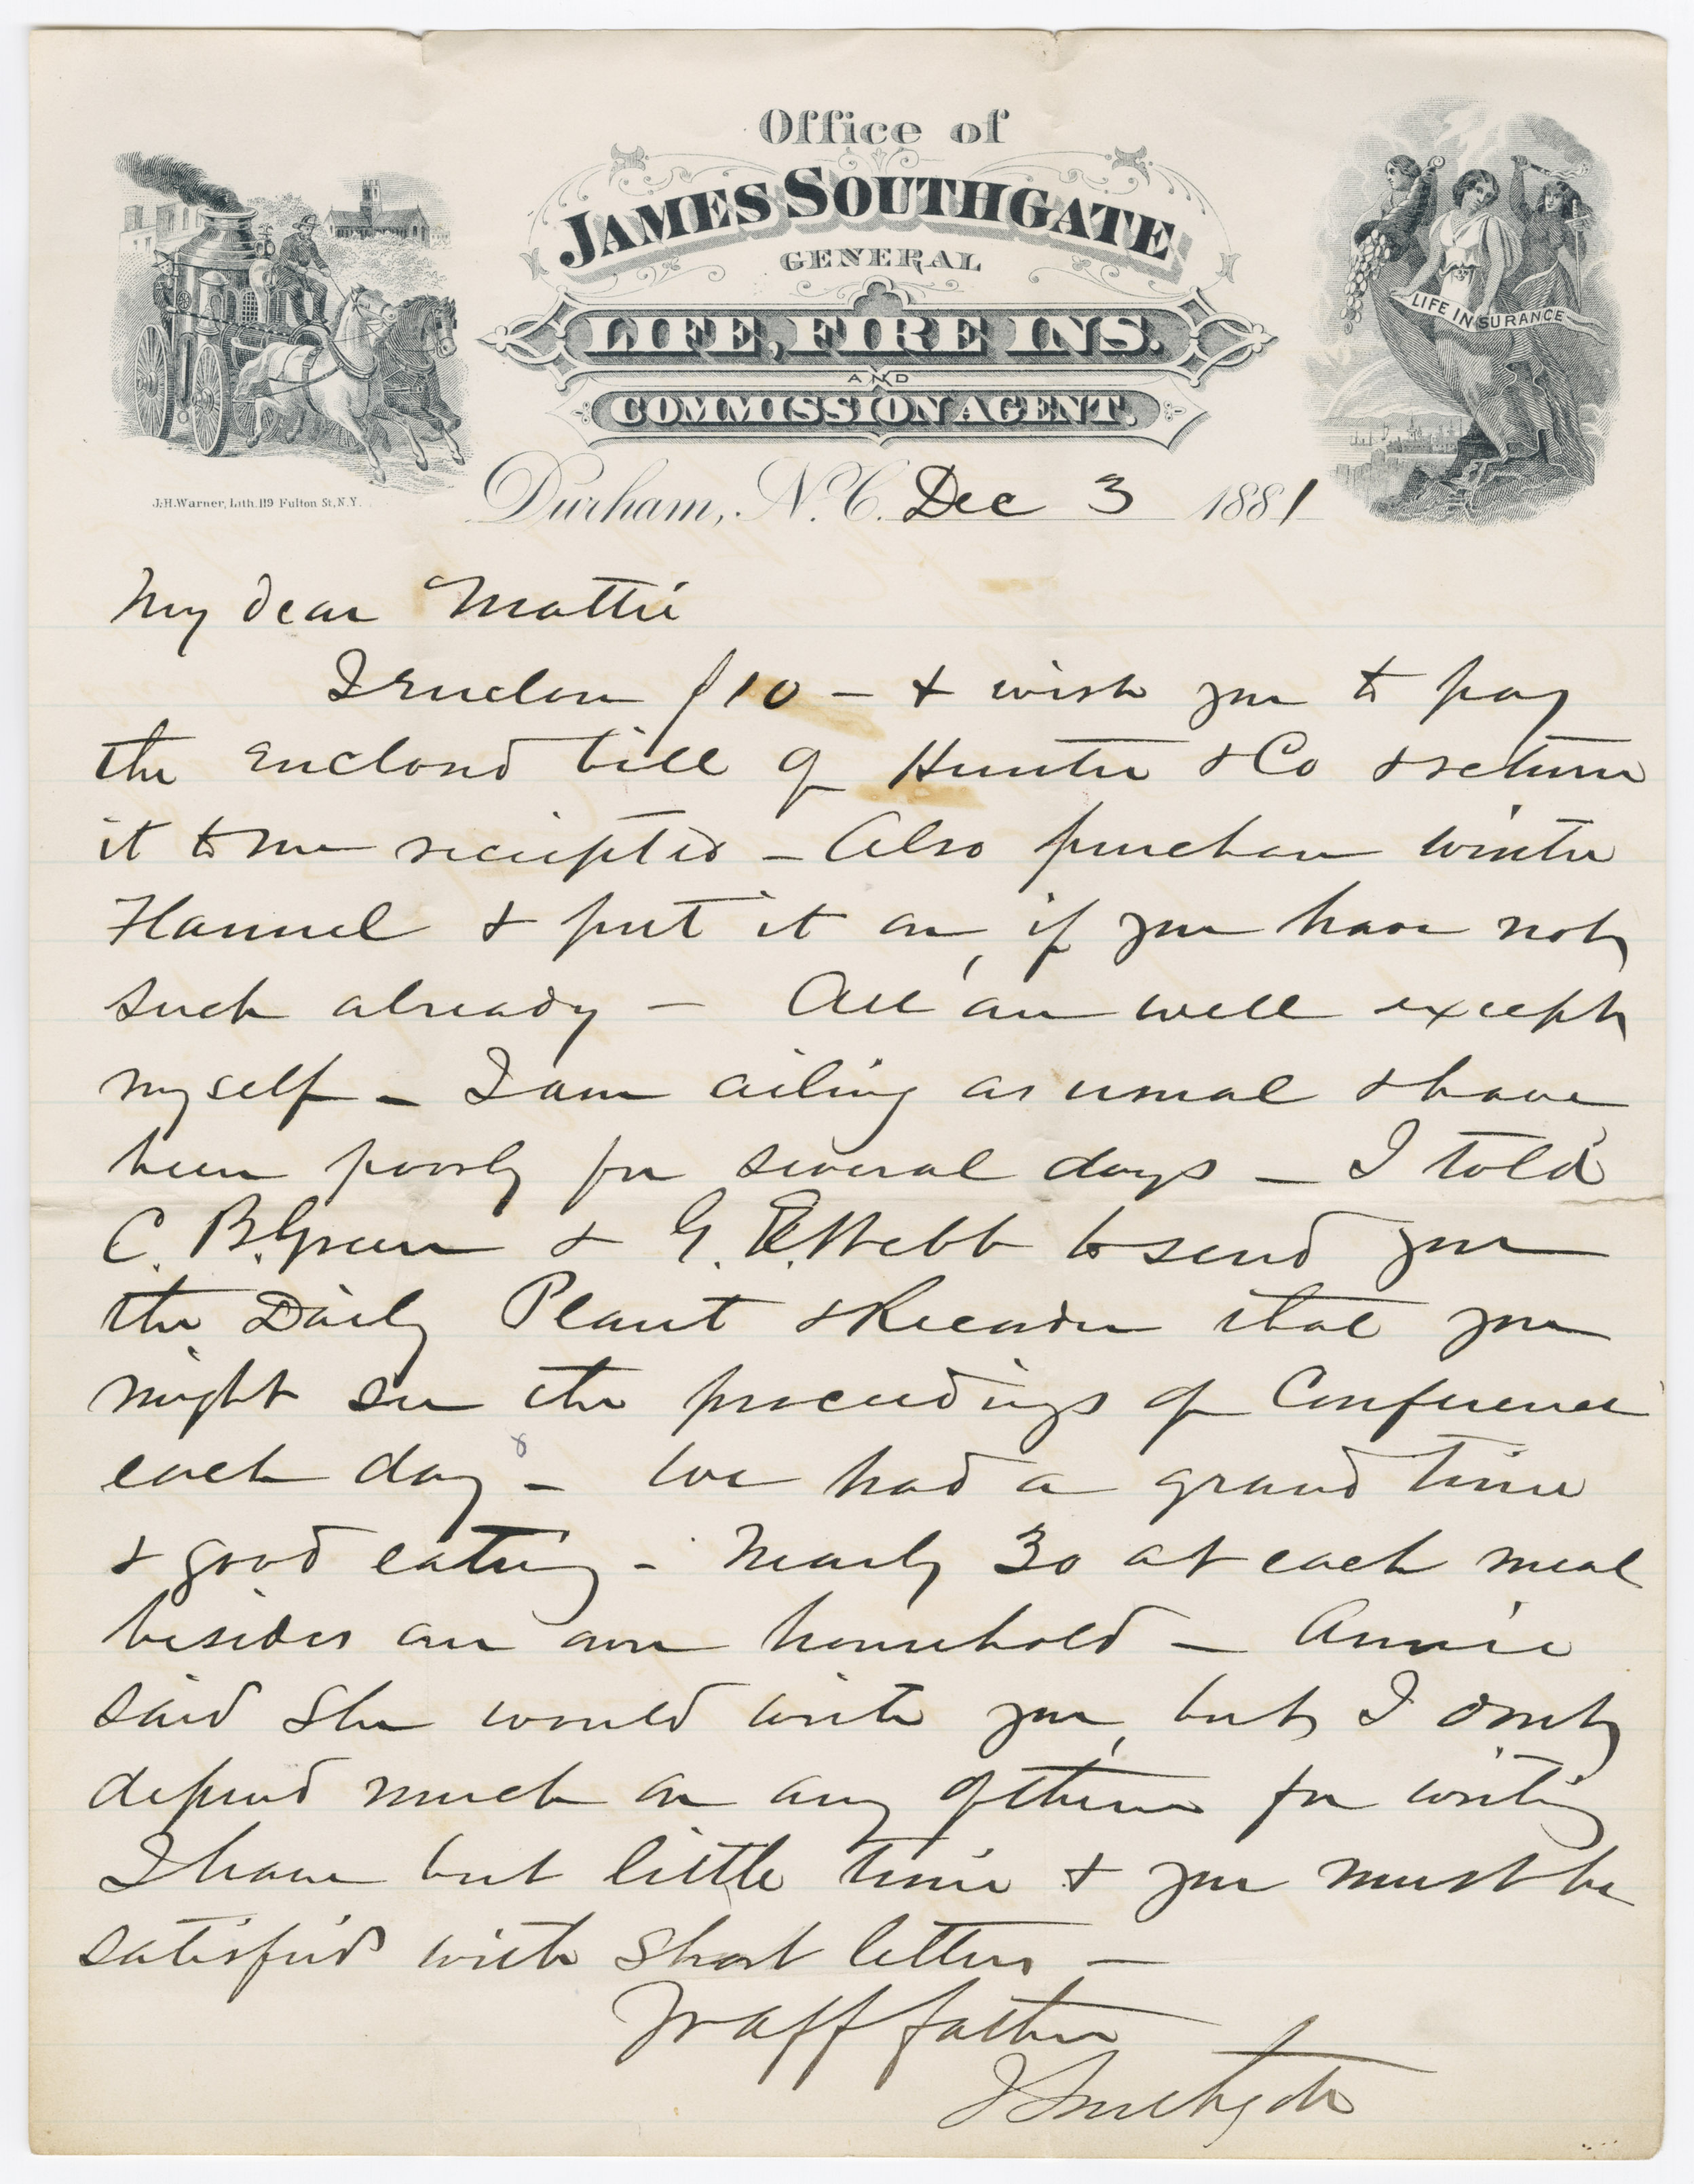 Office of
JAMES SOUTHGATE
GENERAL
LIFE, FIRE INS.
AND
COMMISSION AGENT.
LIFE INSURANCE
J.H. Warner, Lith. 119 Fulton St., N.Y.
Durham, N.C. Dec 3 1881
My dear Mattie
I Enclose $10 - & wish you to pay
the Enclosed bill of Hunter & Co & return
it to me reciepted - Also purchase winter
Flannel & put it on, if you have not
such already - All are well except
myself - I am ailing as usual & have
been poorly for several days - I told
C. B. Green & G. E. Webb to send you
the Daily Plant & Recorder that you
might see the proceedings of Conference
each day - We had a grand time
& good eating - Nearly 30 at each meal
besides our own household - Annie
said She would write you, but I dont
depend much on any of them for writing
I have but little time & you must be
satisfied with Short letters -
Yr aff father
J Southgate